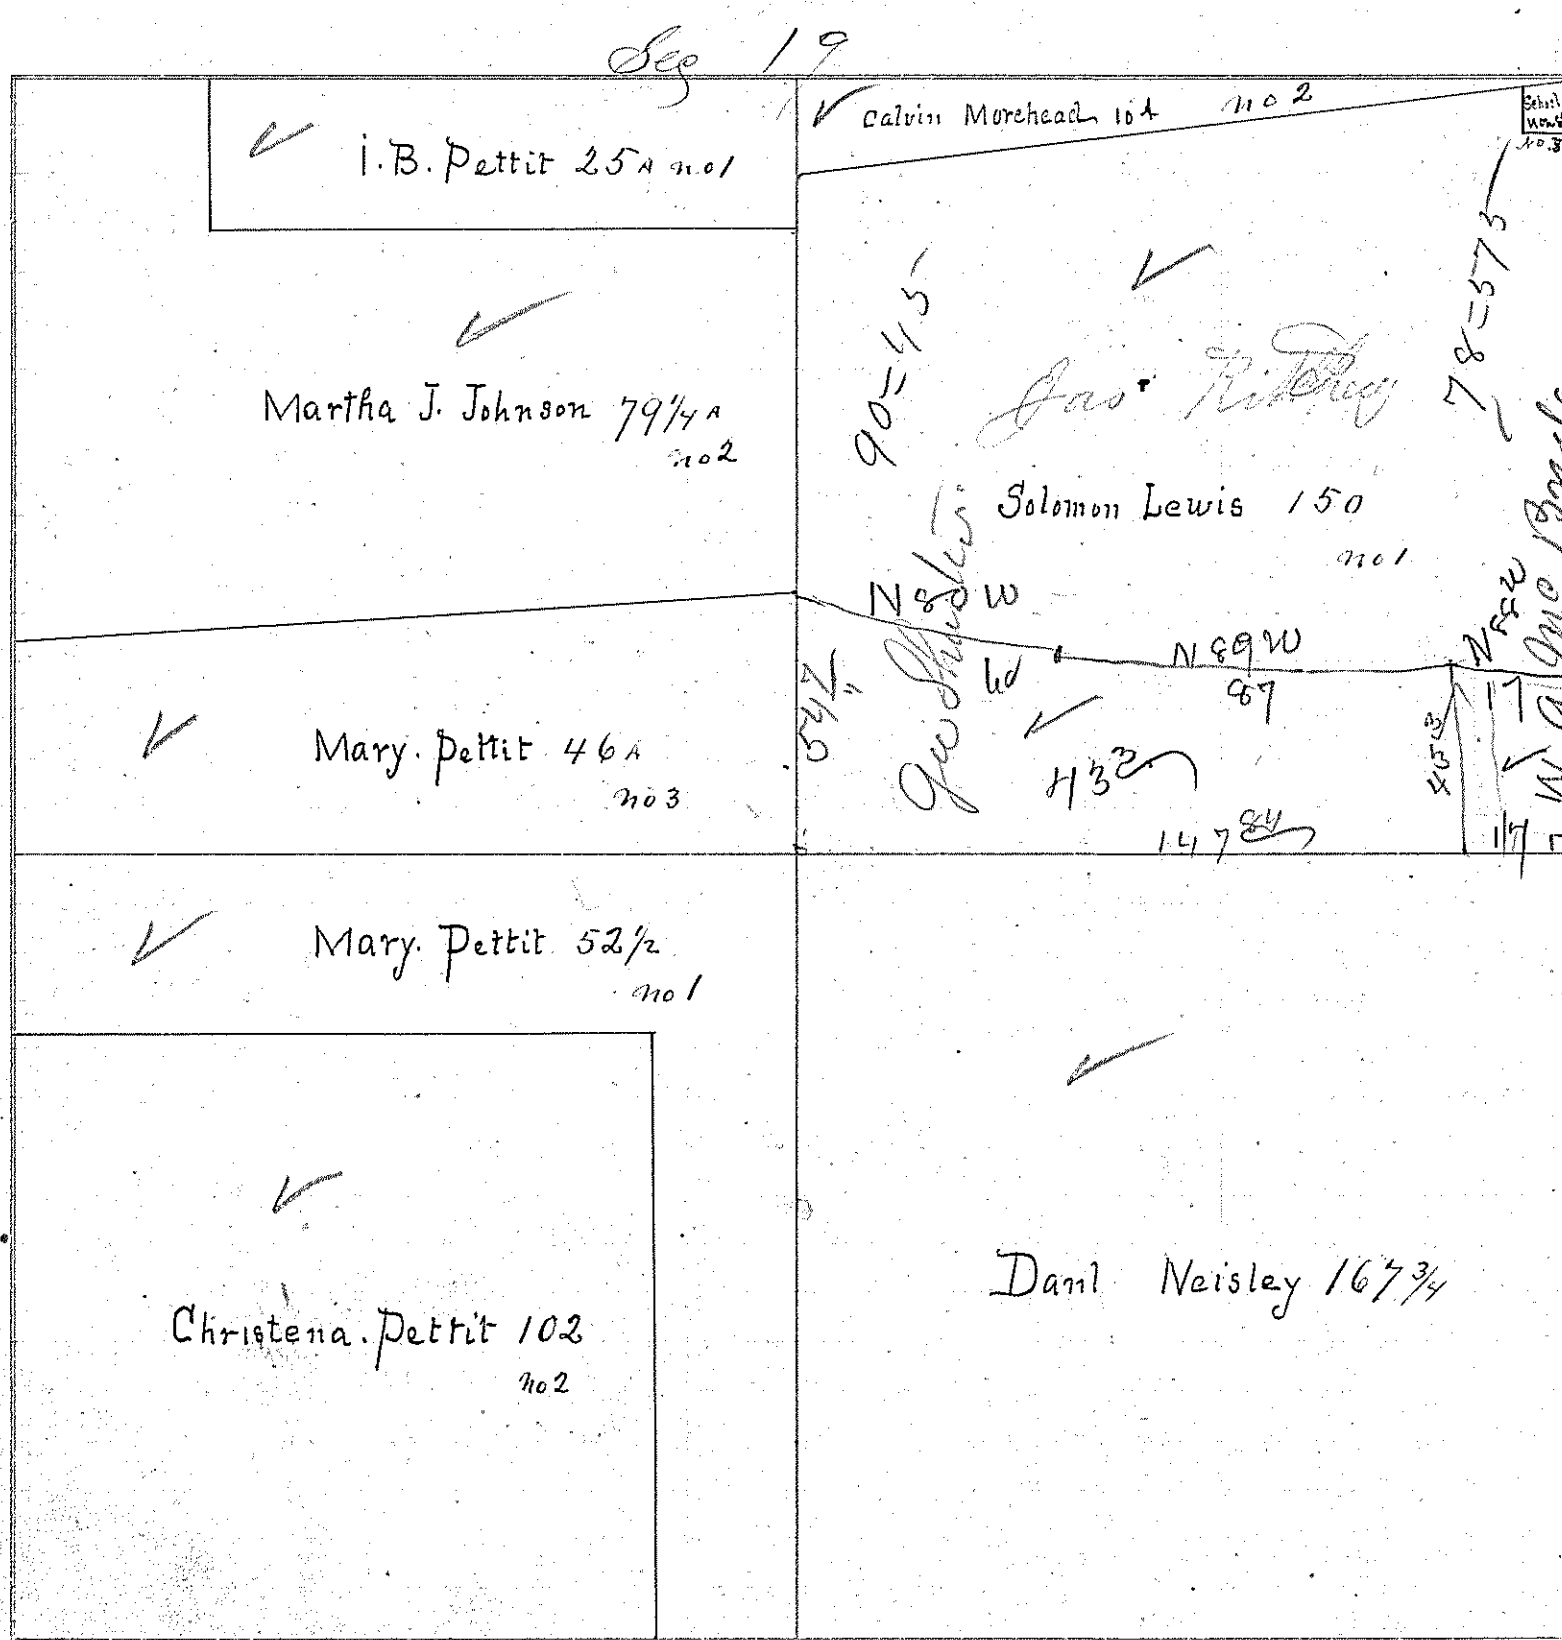 Sec 19
I. B. Pettit 25 A no 1
Calvin Morehead 10 A no 2
School
House
No. 3
Martha J. Johnson 79 1/4 A
no 2
90=45
78=575
Jas Ritchey
Solomon Lewis 150
no 1
N 8 W
N 89 W
87
N 58 W
17
Mary. Pettit 46 A
no 3
547
Geo
43
147 84
453
17
Mary. Pettit 52 1/2
no 1
Christena. Pettit 102
no 2
Danl Neisley 167 3/4